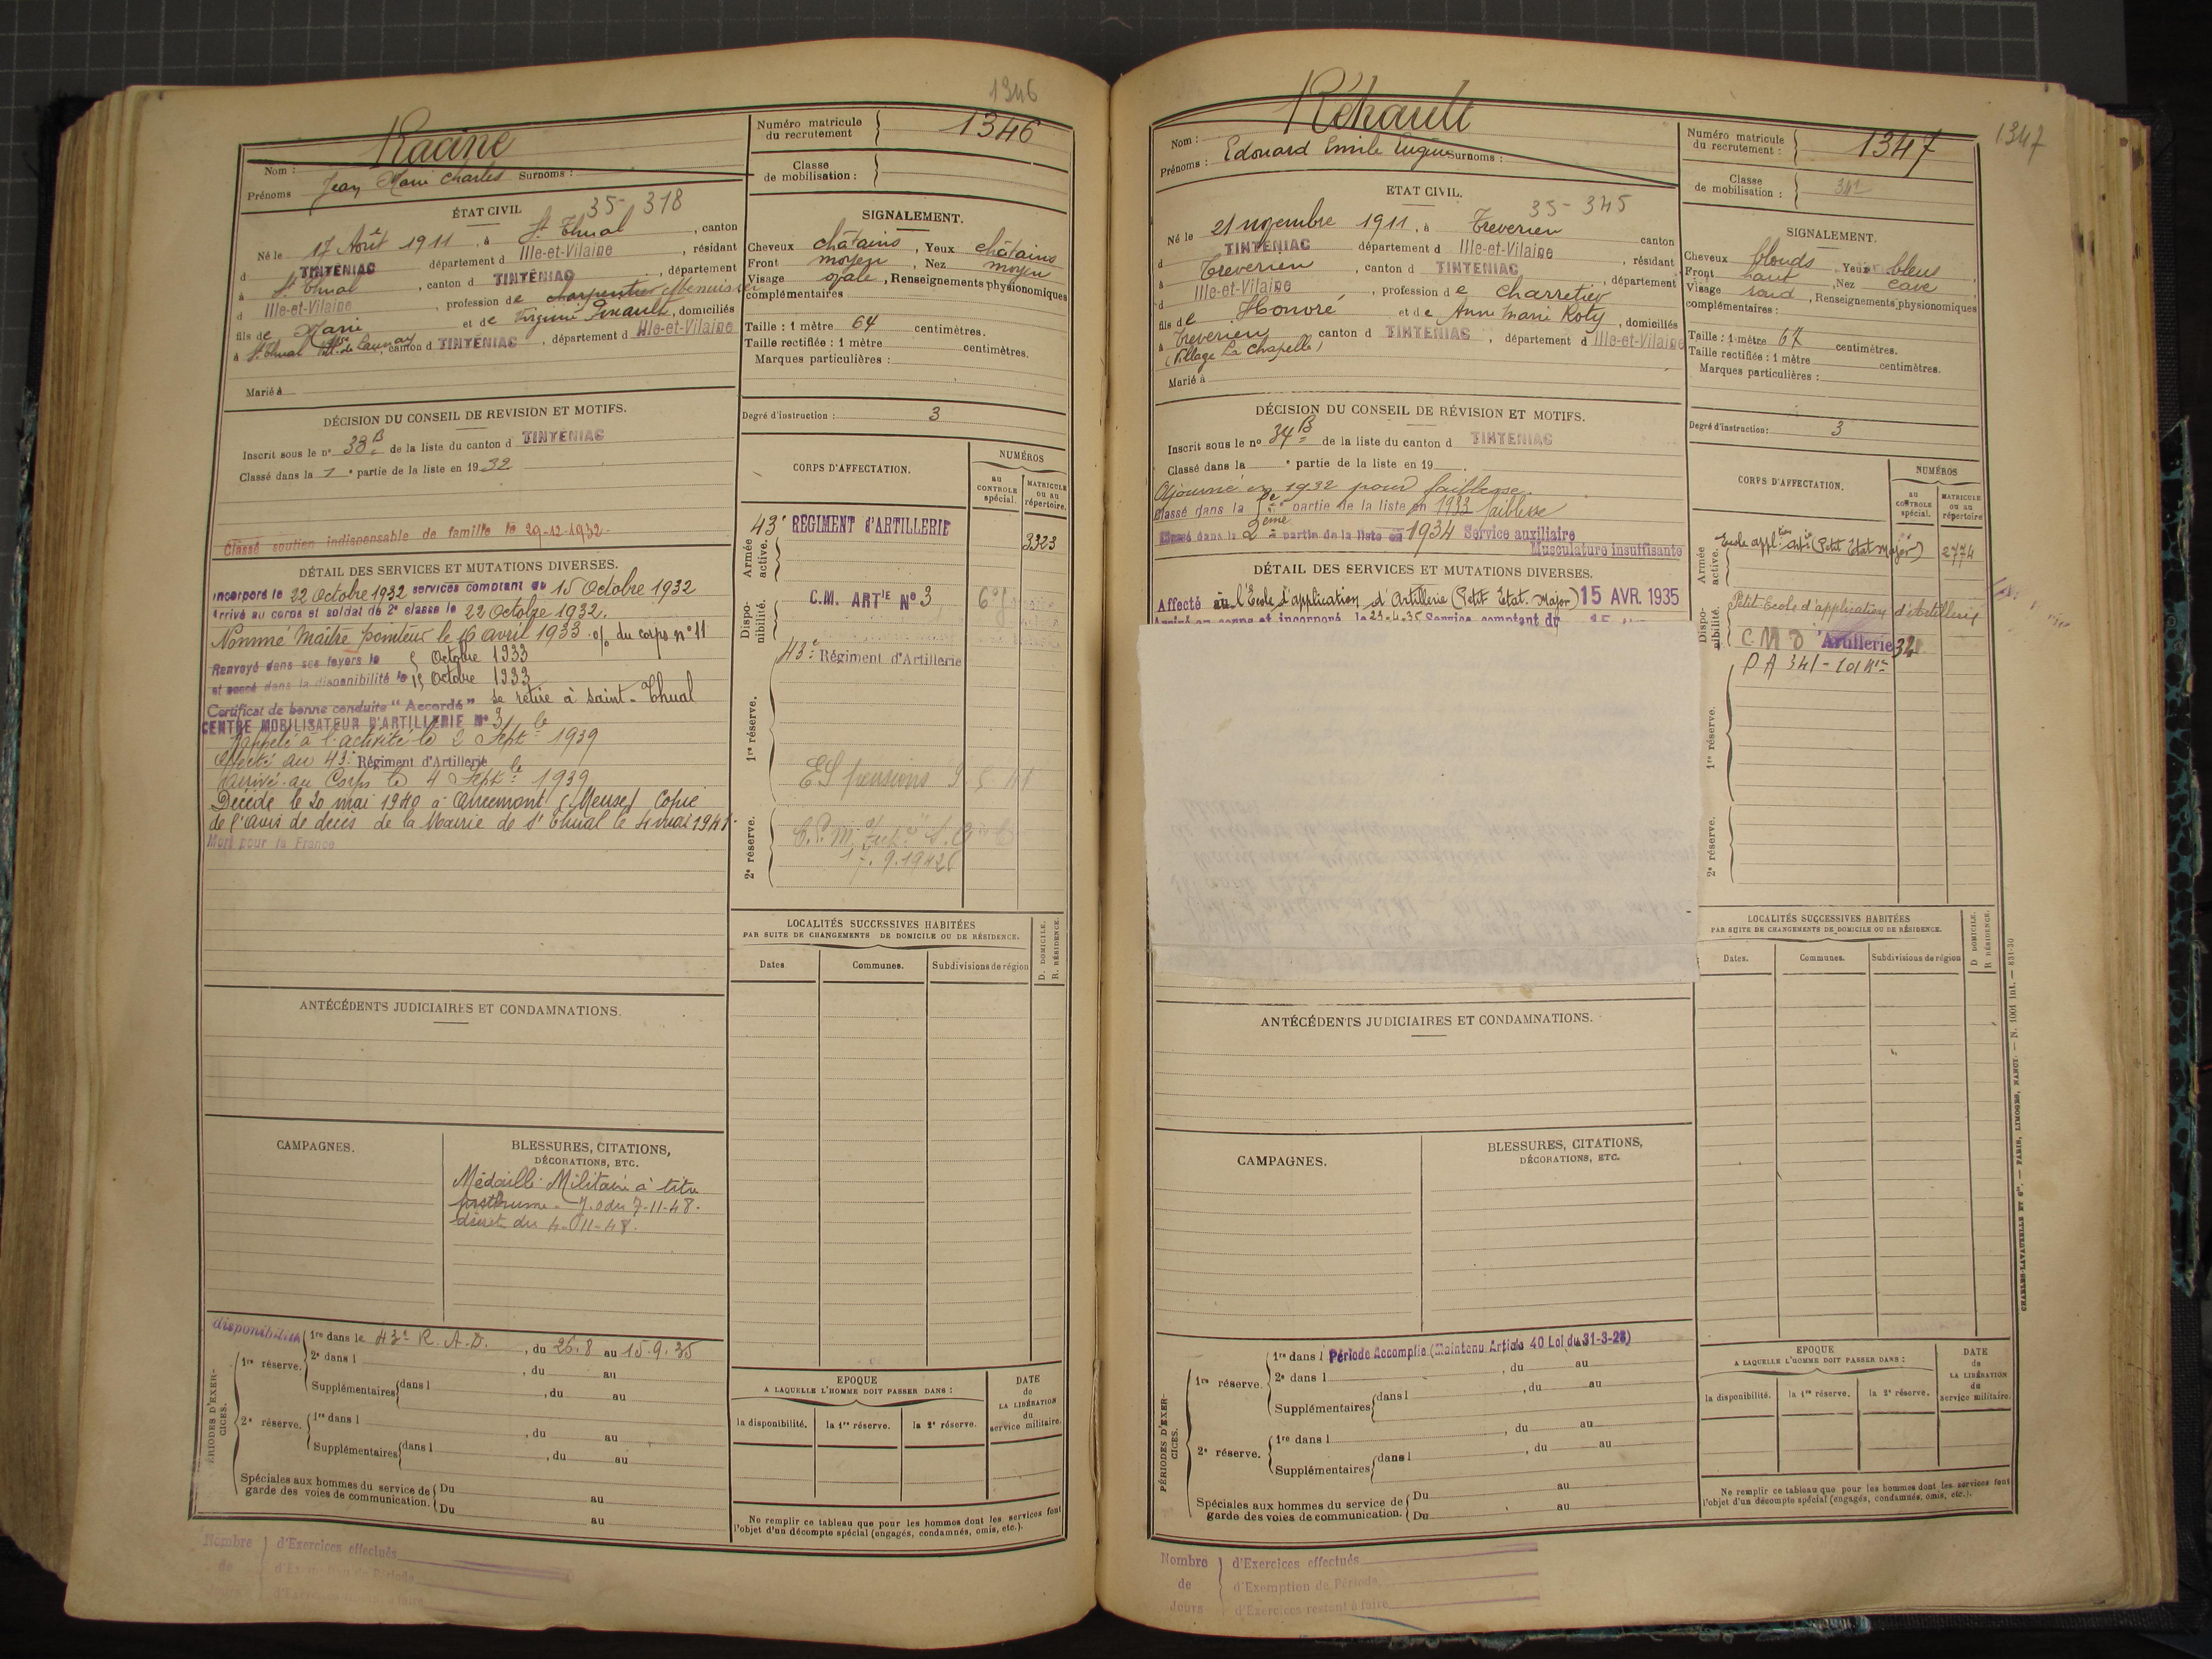 1346
Racine
Nom :
Prénoms Jean Marie Charles Surnoms :
Numéro matricule du recrutement 1346
Classe de mobilisation :
ÉTAT CIVIL 35-318
Né le 17 Août 1911, à St Thual, canton
d TINTÉNIAC département d Ille-et-Vilaine, résidant
à St Thual, canton d TINTÉNIAC, département
d Ille-et-Vilaine, profession de charpentier Menuisier
fils de Marie et de Virginie, domiciliés
à St Thual, canton d TINTÉNIAC, département d Ille-et-Vilaine
Marié à
SIGNALEMENT.
Cheveux châtains, Yeux châtains
Front moyen, Nez moyen
Visage ovale, Renseignements physionomiques
complémentaires
Taille : 1 mètre 64 centimètres.
Taille rectifiée : 1 mètre centimètres.
Marques particulières :
Degré d'instruction : 3
DÉCISION DU CONSEIL DE REVISION ET MOTIFS.
Inscrit sous le n° 33 B de la liste du canton d TINTENIAC
Classé dans la 1 e partie de la liste en 1932
Classé soutien indispensable de famille le 29-12-1932
DÉTAIL DES SERVICES ET MUTATIONS DIVERSES.
Incorporé le 22 Octobre 1932 services comptant du 15 Octobre 1932
Arrivé au corps et soldat de 2e classe le 22 Octobre 1932.
Nommé Maître pointeur le 16 avril 1933 o/ du corps n° 11
Renvoyé dans ses foyers le 5 Octobre 1933
et passé dans la disponibilité le 15 Octobre 1933
Certificat de bonne conduite "Accordé" se retire à saint-Thual
CENTRE MOBILISATEUR D'ARTILLERIE N° 3
Rappelé à l'activité le 2 Septbre 1939
Affecté au 43e Régiment d'Artillerie
Arrivé au Corps le 4 Septbre 1939
Décédé le 20 mai 1940 à (Meuse) Copie
de l'avis de décès de la Mairie de St Thual le 4 mai 1941
Mort pour la France
CORPS D'AFFECTATION.
NUMÉROS
au CONTROLE spécial.
MATRICULE ou au répertoire.
Armée active.
43e REGIMENT d'ARTILLERIE 3323
Disponibilité.
C.M. ARTIE N° 3
43e Régiment d'Artillerie
1re réserve.
ES pensions
2e réserve.
LOCALITÉS SUCCESSIVES HABITÉES
PAR SUITE DE CHANGEMENTS DE DOMICILE OU DE RÉSIDENCE.
D. DOMICILE.
R. RÉSIDENCE.
Dates Communes. Subdivisions de région
ANTÉCÉDENTS JUDICIAIRES ET CONDAMNATIONS.
CAMPAGNES.
BLESSURES, CITATIONS, DÉCORATIONS, ETC.
Médaille Militaire à titre
posthume - J.O du 7-11-48.
décret du 4-11-48.
PÉRIODES D'EXERCICES.
disponibilité
1re réserve. 1re dans le 43e R.A.D., du 26.8 au 15.9.35
2e dans l, du au
Supplémentaires dans l, du au
2e réserve. 1re dans l, du au
Supplémentaires dans l, du au
Spéciales aux hommes du service de garde des voies de communication. Du au
Du au
EPOQUE
A LAQUELLE L'HOMME DOIT PASSER DANS :
la disponibilité. la 1re réserve. la 2e réserve.
DATE de LA LIBÉRATION du service militaire.
Ne remplir ce tableau que pour les hommes dont les services font
l'objet d'un décompte spécial (engagés, condamnés, omis, etc.).
Nombre de Jours
d'Exercices effectués
d'Exemption de Période
d'Exercices restant à faire
1347
Réhault
Nom :
Prénoms : Edouard Emile Eugène Surnoms :
Numéro matricule du recrutement : 1347
Classe de mobilisation :
ETAT CIVIL. 35-345
Né le 21 novembre 1911, à Treverien canton
d TINTENIAC département d Ille-et-Vilaine, résidant
à Treverien, canton d TINTENIAC, département
d Ille-et-Vilaine, profession de Charretier
fils de Honoré et de Anne Marie Roty, domiciliés
à Treverien canton d TINTENIAC, département d Ille-et-Vilaine
(Village La Chapelle)
Marié à
SIGNALEMENT.
Cheveux blonds, Yeux bleus
Front haut, Nez cave
Visage rond, Renseignements physionomiques
complémentaires :
Taille : 1 mètre 67 centimètres.
Taille rectifiée : 1 mètre centimètres.
Marques particulières :
Degré d'instruction : 3
DÉCISION DU CONSEIL DE RÉVISION ET MOTIFS.
Inscrit sous le n° 34 B de la liste du canton d TINTENIAC
Classé dans la e partie de la liste en 19
Ajourné en 1932 pour faiblesse
Classé dans la partie de la liste en 1933 faiblesse
Classé dans la 2ème partie de la liste en 1934 Service auxiliaire
Musculature insuffisante
DÉTAIL DES SERVICES ET MUTATIONS DIVERSES.
Affecté à l'Ecole d'application d'Artillerie (Petit Etat-Major) 15 AVR. 1935
Arrivé au corps et incorporé le 23-4-35 Service comptant du
CORPS D'AFFECTATION.
NUMÉROS
au CONTROLE spécial.
MATRICULE ou au répertoire
Armée active.
Ecole appltion Artie (Petit Etat Major) 2774
Disponibilité.
Petit Ecole d'application d'Artillerie
C M 3 Artillerie 32
1re réserve.
2e réserve.
LOCALITÉS SUCCESSIVES HABITÉES
PAR SUITE DE CHANGEMENTS DE DOMICILE OU DE RÉSIDENCE.
D DOMICILE.
R RÉSIDENCE.
Dates. Communes. Subdivisions de région
ANTÉCÉDENTS JUDICIAIRES ET CONDAMNATIONS.
CAMPAGNES.
BLESSURES, CITATIONS, DÉCORATIONS, ETC.
PÉRIODES D'EXERCICES.
1re réserve. 1re dans l Période Accomplie (Maintenu Article 40 Loi du 31-3-28)
2e dans l, du au
Supplémentaires dans l, du au
2e réserve. 1re dans l, du au
Supplémentaires dans l, du au
Spéciales aux hommes du service de garde des voies de communication. Du au
Du au
EPOQUE
A LAQUELLE L'HOMME DOIT PASSER DANS :
la disponibilité. la 1re réserve. la 2e réserve.
DATE de LA LIBÉRATION du service militaire.
Ne remplir ce tableau que pour les hommes dont les services font
l'objet d'un décompte spécial (engagés, condamnés, omis, etc.).
CHARLES-LAVAUZELLE ET Cie. — PARIS, LIMOGES, NANCY. — N. 1001 int. — 631-30
Nombre de Jours
d'Exercices effectués
d'Exemption de Période
d'Exercices restant à faire